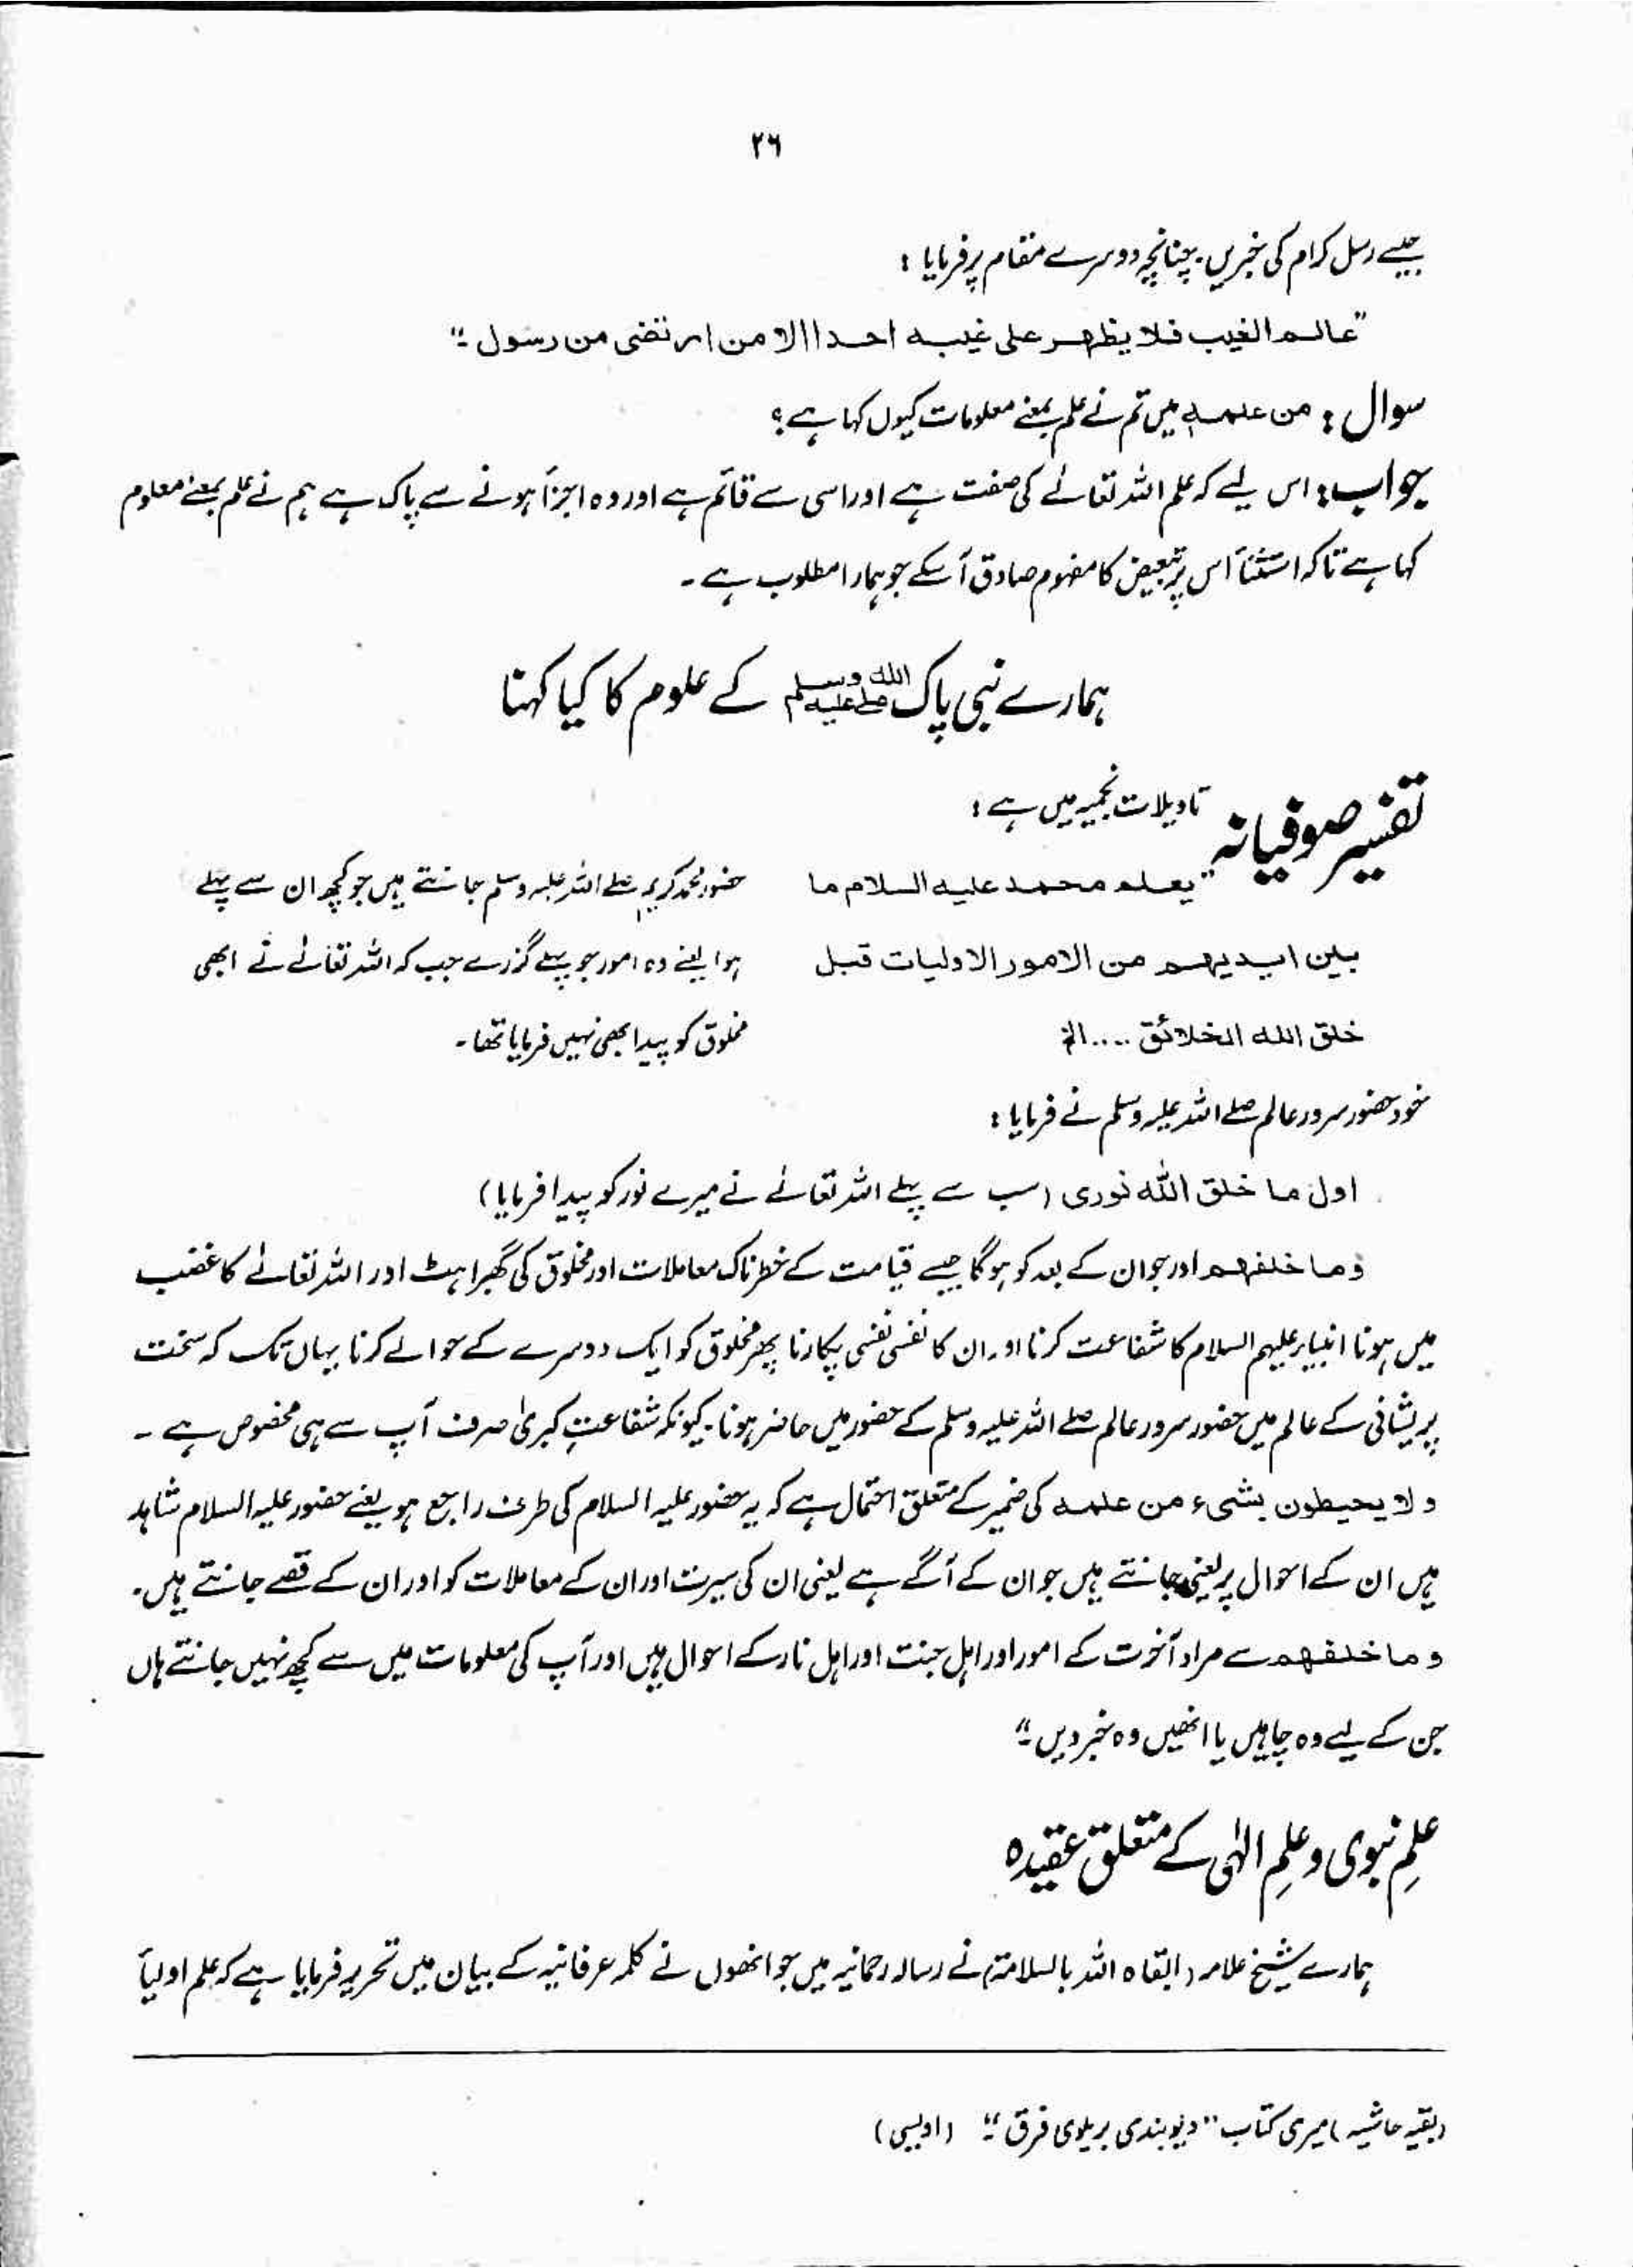 ۲۶
جیسے رسل کرام کی خبریں۔ چنانچہ دوسرے مقام پر فرمایا :
"عالم الغیب فلا یظهر علی غیبه احدا الا من ارتضی من رسول۔"
سوال : من علمه میں تم نے علم بمعنے معلومات کیوں کہا ہے؟
جواب : اس لیے کہ علم اللہ تعالےٰ کی صفت ہے اور اسی سے قائم ہے اور وہ اجزأ ہونے سے پاک ہے ہم نے علم بمعنے معلوم
کہا ہے تاکہ استثنأ اس پر تبعیض کا مفہوم صادق آ سکے جو ہمارا مطلوب ہے۔
ہمارے نبی پاک صلی اللہ علیہ وسلم کے علوم کا کیا کہنا
تفسیر صوفیانہ تاویلات نجمیہ میں ہے :
"یعلم محمد علیه السلام ما
بین ایدیهم من الامور الاولیات قبل
خلق الله الخلائق .... الخ
حضور محمد کریم صلے اللہ علیہ وسلم جانتے ہیں جو کچھ ان سے پہلے
ہوا یعنے وہ امور جو پہلے گزرے جب کہ اللہ تعالےٰ نے ابھی
مخلوق کو پیدا بھی نہیں فرمایا تھا۔
خود حضور سرور عالم صلے اللہ علیہ وسلم نے فرمایا :
اول ما خلق اللہ نوری (سب سے پہلے اللہ تعالےٰ نے میرے نور کو پیدا فرمایا)
وما خلفهم اور جو ان کے بعد کو ہوگا جیسے قیامت کے خطرناک معاملات اور مخلوق کی گھبراہٹ اور اللہ تعالےٰ کا غضب
میں ہونا انبیاء علیہم السلام کا شفاعت کرنا اور ان کا نفسی نفسی پکارنا پھر مخلوق کو ایک دوسرے کے حوالے کرنا یہاں تک کہ سخت
پریشانی کے عالم میں حضور سرور عالم صلے اللہ علیہ وسلم کے حضور میں حاضر ہونا۔ کیونکہ شفاعتِ کبریٰ صرف آپ سے ہی مخصوص ہے۔
ولا یحیطون بشیء من علمه کی ضمیر کے متعلق احتمال ہے کہ یہ حضور علیہ السلام کی طرف راجع ہو یعنے حضور علیہ السلام شاہد
ہیں ان کے احوال پر یعنی جانتے ہیں جو ان کے آگے ہے یعنی ان کی سیرت اور ان کے معاملات کو اور ان کے قصے جانتے ہیں۔
وما خلفهم سے مراد آخرت کے امور اور اہل جنت اور اہل نار کے احوال ہیں اور آپ کی معلومات میں سے کچھ نہیں جانتے ہاں
جن کے لیے وہ چاہیں یا انھیں وہ خبر دیں۔"
علمِ نبوی و علمِ الٰہی کے متعلق عقیدہ
ہمارے شیخ علامہ (ابقاہ اللہ بالسلامۃ) نے رسالہ رحمانیہ میں جو انھوں نے کلمہ عرفانیہ کے بیان میں تحریر فرمایا ہے کہ علم اولیأ
(بقیہ حاشیہ) میری کتاب "دیوبندی بریلوی فرق۔" (اویسی)